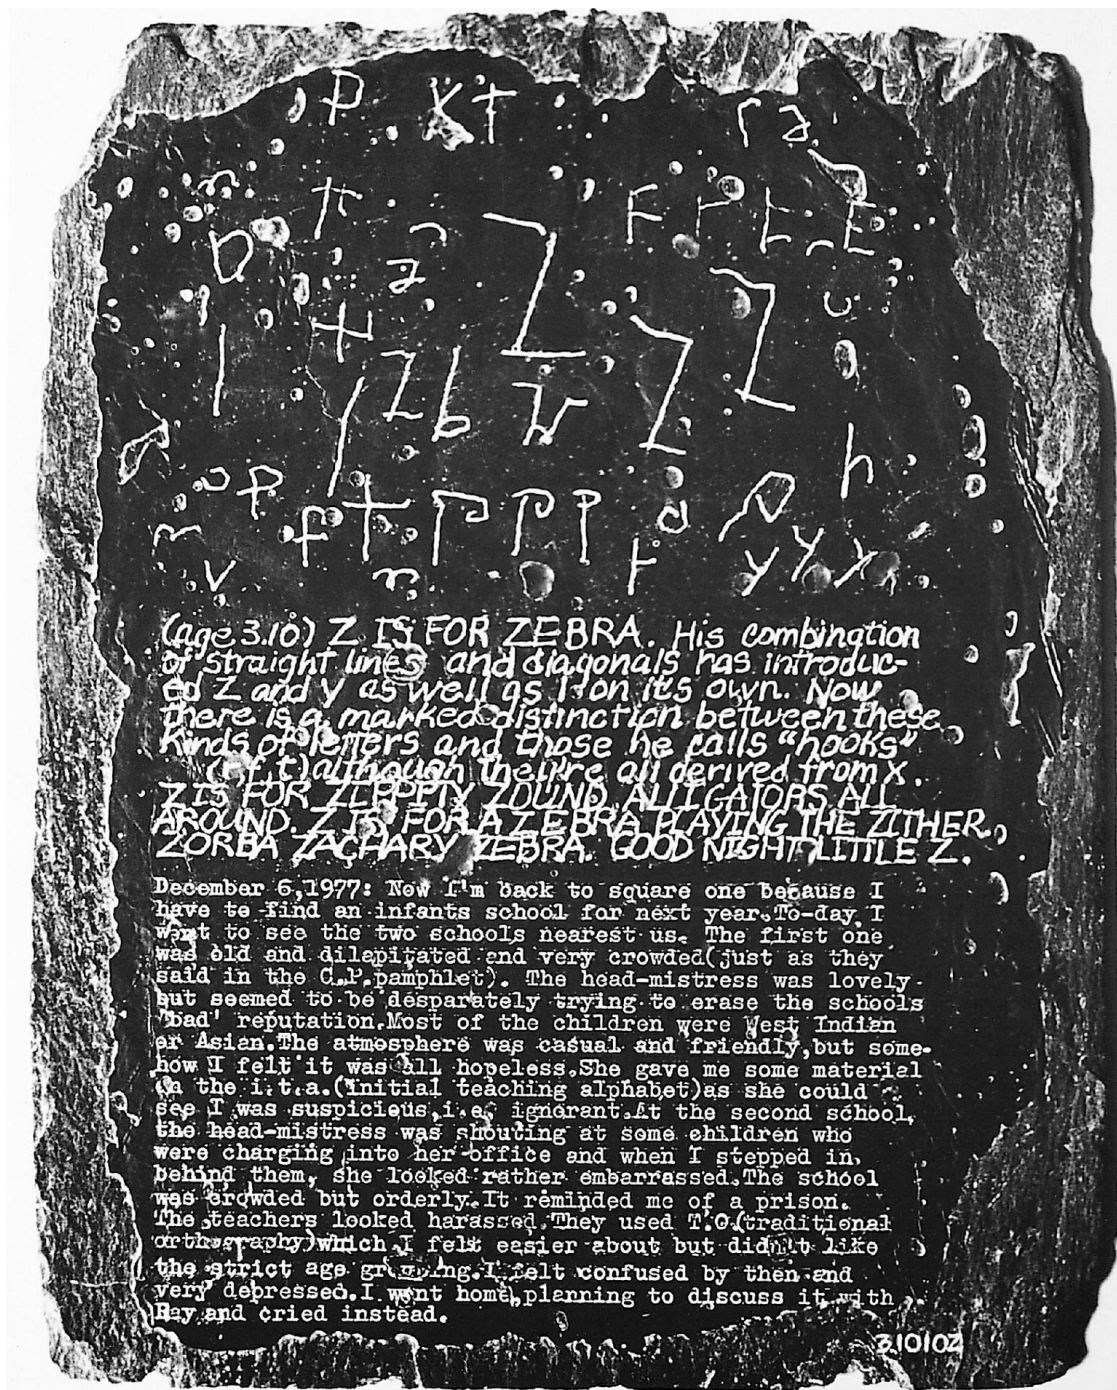 p xt r a
n
π F r t r E
b r Z
a Z u
t
l Z b h Z
l h
o p t p p p a p
m f t y y x
v n
(age 3.10) Z IS FOR ZEBRA. His combination
of straight lines and diagonals has introduc-
ed Z and y as well as l on its own. Now
there is a marked distinction between these
kinds of letters and those he calls "hooks"
(r, f, t) although they're all derived from x.
Z IS FOR ZIPPITY ZOUND, ALLIGATORS ALL
AROUND. Z IS FOR A ZEBRA PLAYING THE ZITHER.
ZORBA ZACHARY ZEBRA. GOOD NIGHT LITTLE Z.
December 6,1977: Now I'm back to square one because I
have to find an infants school for next year.To-day, I
went to see the two schools nearest us. The first one
was old and dilapitated and very crowded(just as they
said in the C.P.pamphlet). The head-mistress was lovely
but seemed to be desparately trying to erase the schools
'bad' reputation.Most of the children were West Indian
or Asian.The atmosphere was casual and friendly,but some-
how I felt it was all hopeless.She gave me some material
on the i.t.a.(initial teaching alphabet)as she could
see I was suspicious,i.e. ignorant.At the second school,
the head-mistress was shouting at some children who
were charging into her office and when I stepped in,
behind them, she looked rather embarrassed.The school
was crowded but orderly.It reminded me of a prison.
The teachers looked harassed.They used T.O.(traditional
orthography)which I felt easier about but didn't like
the strict age grouping.I felt confused by then and
very depressed.I went home,planning to discuss it with
Ray and cried instead.
3.1010Z